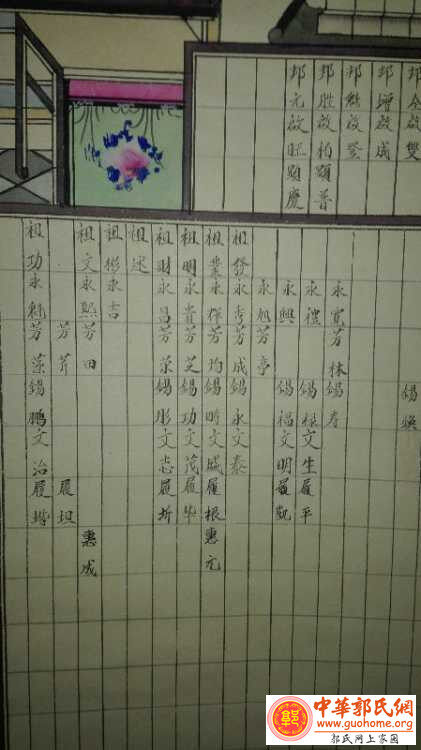 邦全啟雙
邦增啟成
邦魁啟登
邦胜啟柏顕普
邦元啟旺顕慶
錫煥
永寬芳林錫寿
永禮錫禄文生履平
永興錫福文明履凱
永旭芳亭
祖發永秀芳成錫永文泰
祖業永祥芳均錫明文成履根惠元
祖明永貴芳芝錫功文茂履华
祖財永昌芳荣錫彤文志履圻
祖述
祖彬永吉
祖文永熙芳田惠成
芳芹履坦
祖功永魁芳藻錫鵬文治履增
中華郭氏網
www.guohome.org
郭氏网上家园